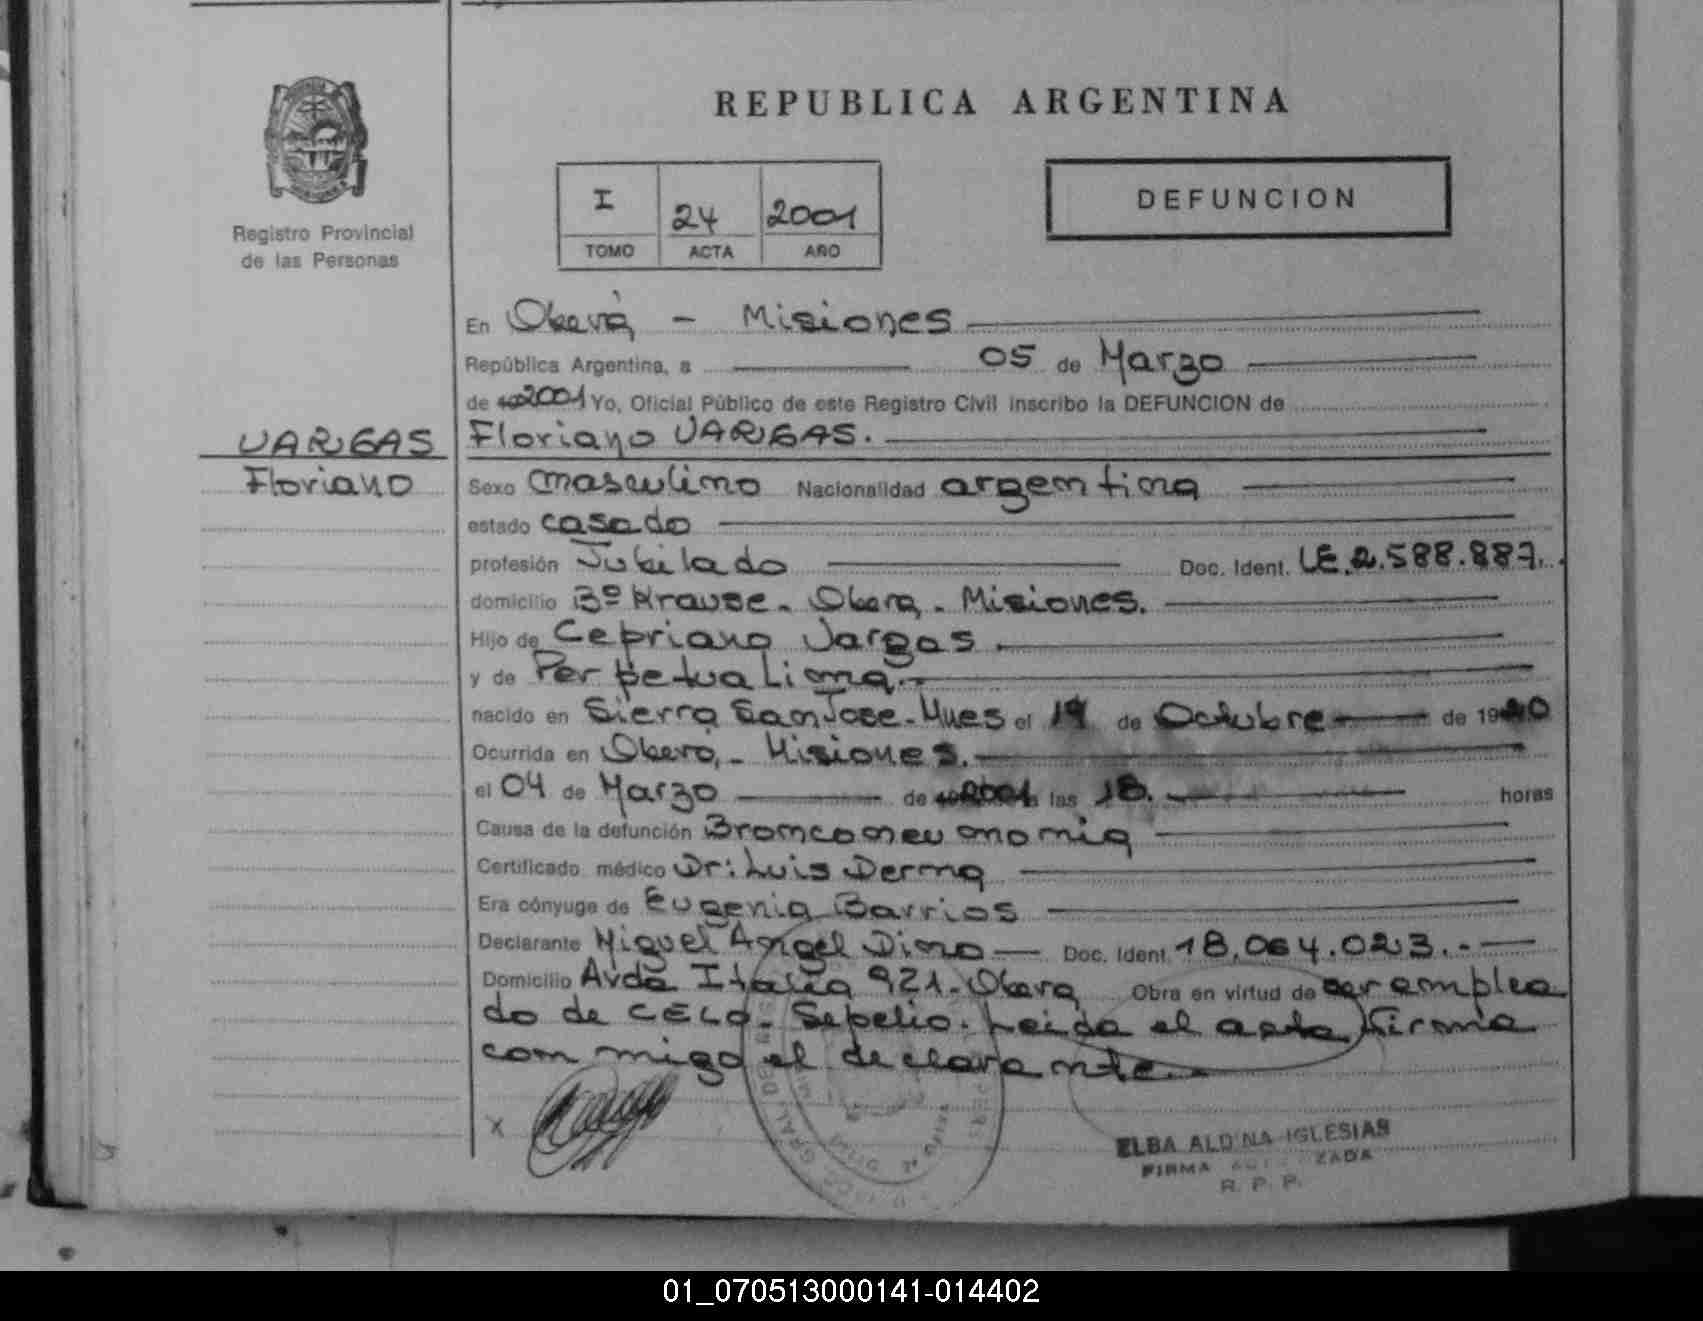 REPUBLICA ARGENTINA
Registro Provincial
de las Personas
I 24 2001
TOMO ACTA AÑO
DEFUNCION
En Oberá - Misiones
República Argentina, a 05 de Marzo
de 2001 Yo, Oficial Público de este Registro Civil inscribo la DEFUNCION de
VARGAS
Floriano
Floriano VARGAS.
Sexo masculino Nacionalidad argentina
estado casado
profesión Jubilado Doc. Ident. LE.2.588.887.
domicilio Bº Krause - Obera - Misiones.
Hijo de Cepriano Vargas
y de Perpetua Lima
nacido en Sierra San Jose - Mnes el de Octubre de 19
Ocurrida en Oberá, - Misiones.
el 04 de Marzo de 2001 a las 18. horas
Causa de la defunción Bronconeumonia
Certificado médico Dr: Luis Derna
Era cónyuge de Eugenia Barrios
Declarante Miguel Angel Dino Doc. Ident. 18.064.023.-
Domicilio Avda Italia 921 - Obera Obra en virtud de ser emplea
do de CELO - Sepelio. Leida el acta firma
conmigo el declarante.
X
ELBA ALDINA IGLESIAS
FIRMA AUTORIZADA
R. P. P.
01_070513000141-014402